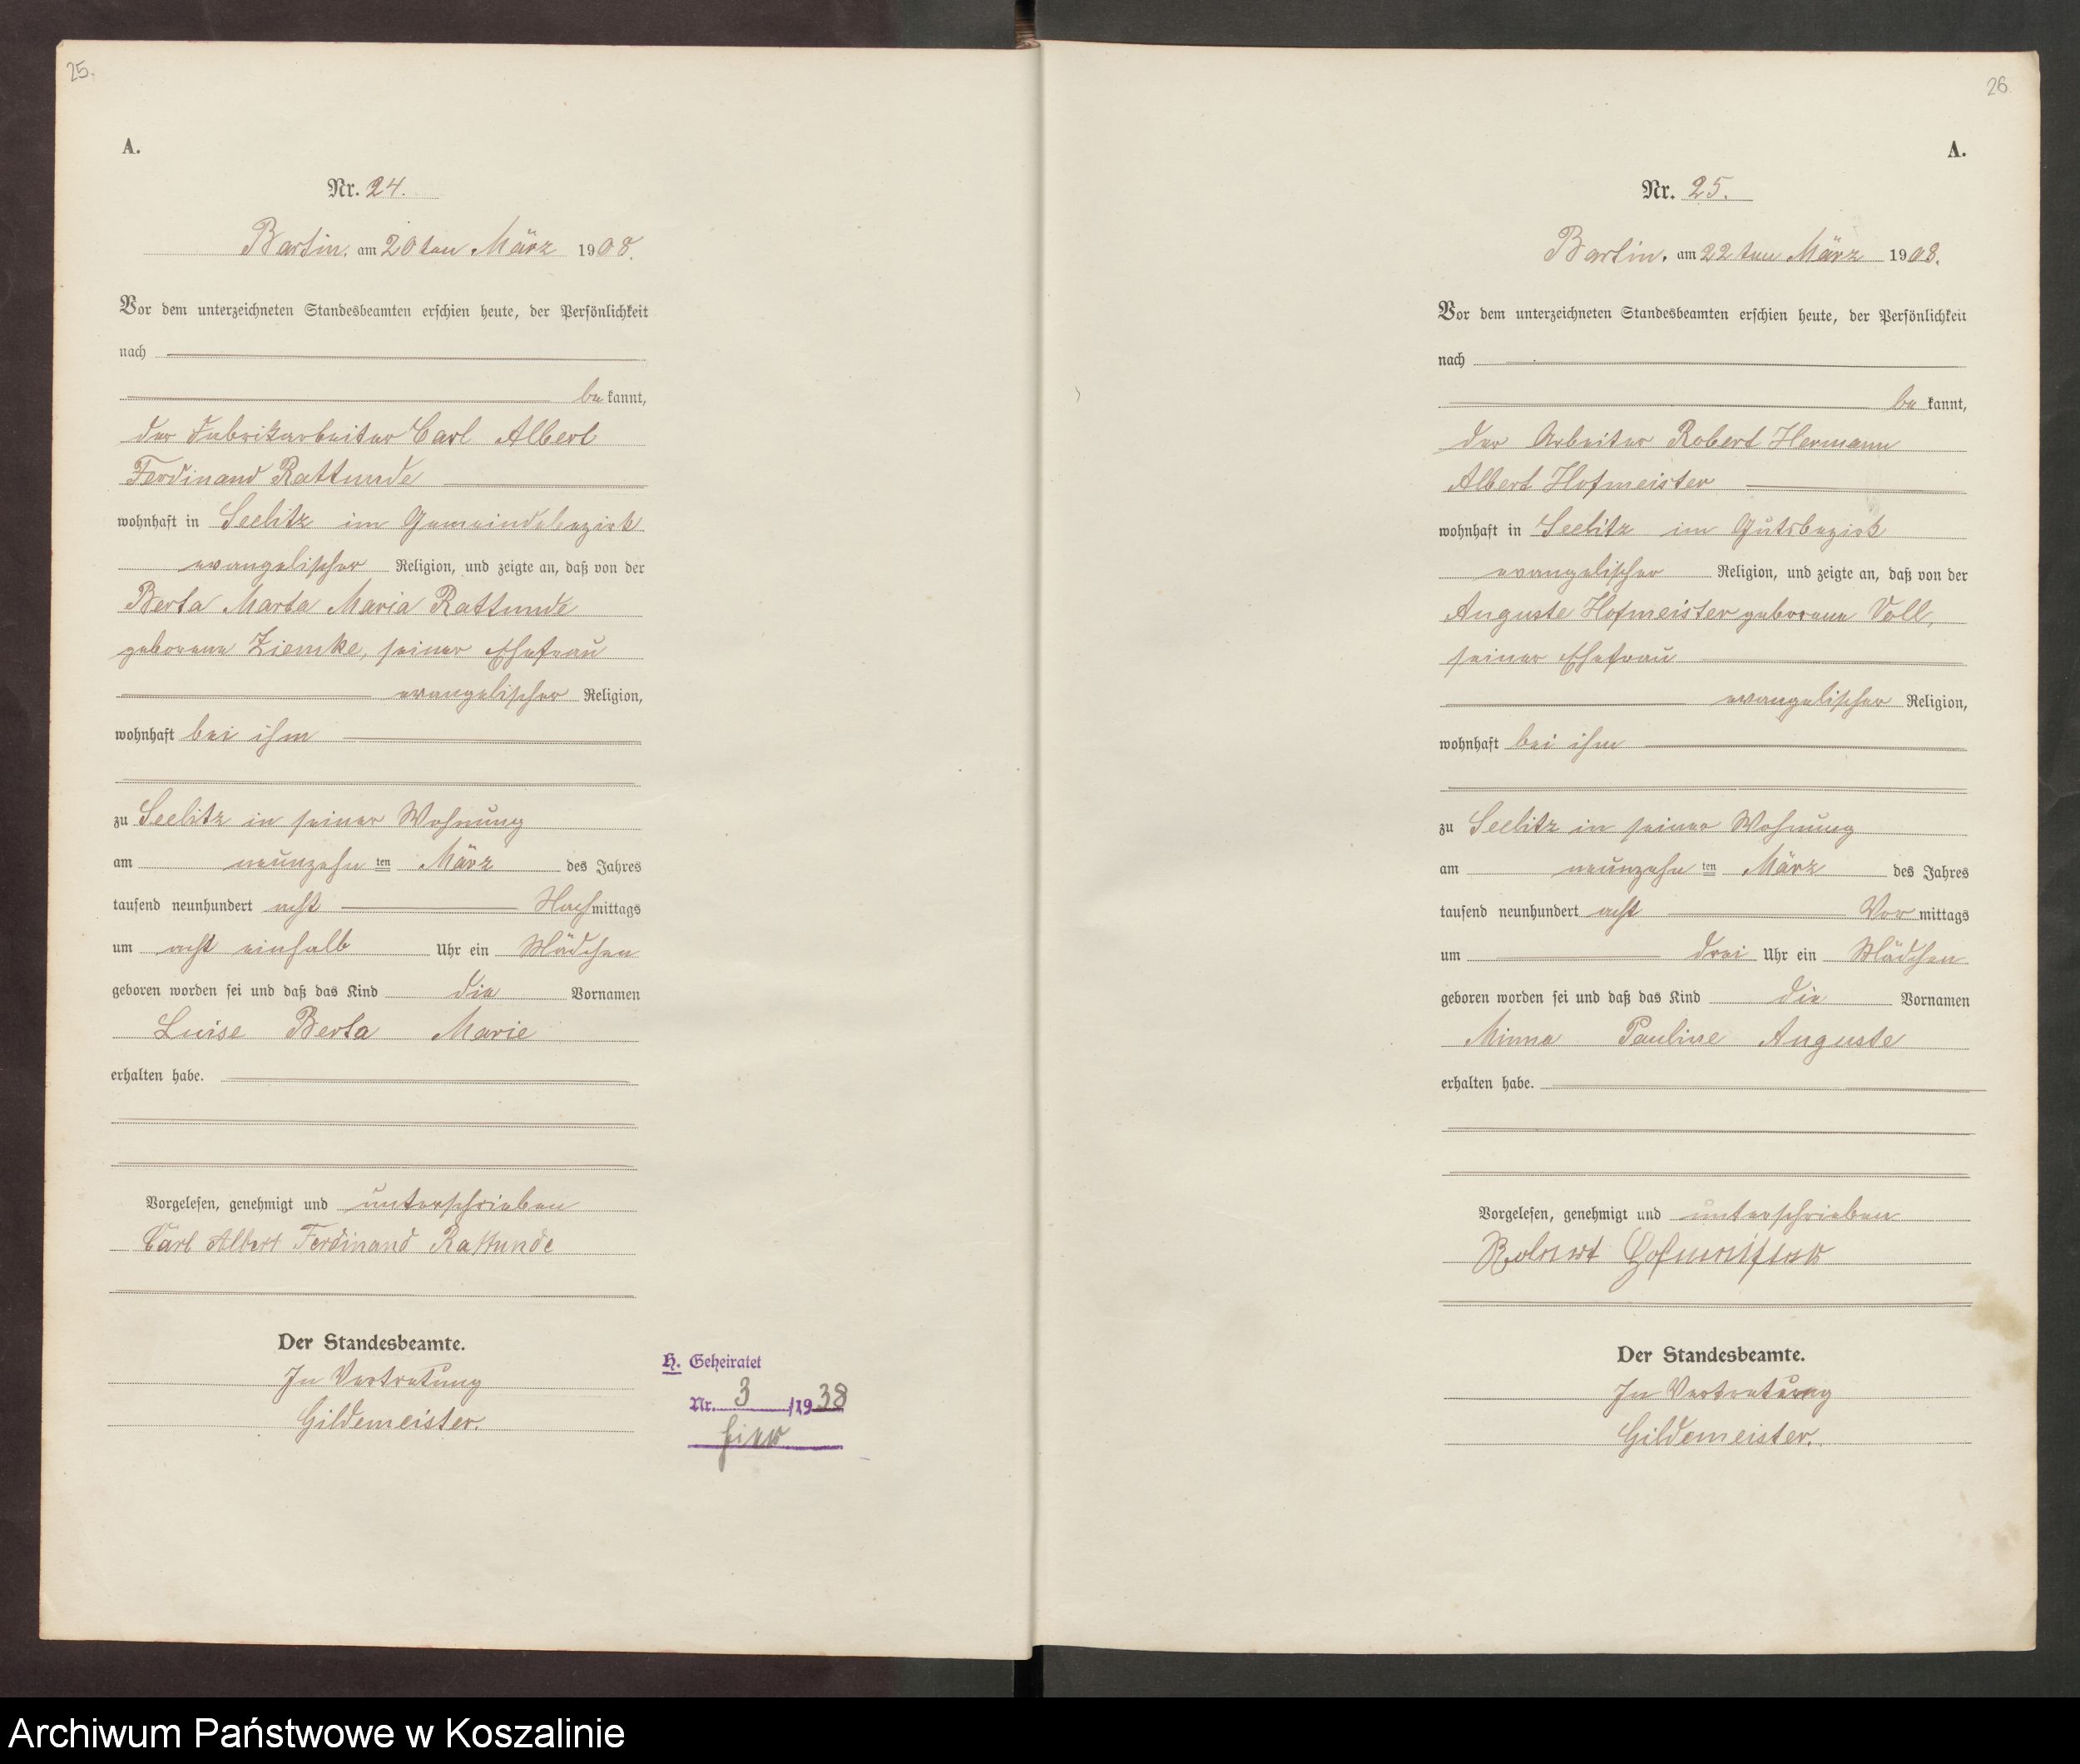 25.
A.
Nr. 24.
Bartin. am 20ten März 1908.
Vor dem unterzeichneten Standesbeamten erschien heute, der Persönlichkeit
nach
bekannt,
der Fabrikarbeiter Carl Albert
Ferdinand Rattunde
wohnhaft in Seelitz im Gemeindebezirk
evangelischer Religion, und zeigte an, daß von der
Berta Marta Maria Rattunde
geborene Ziemke, seiner Ehefrau
evangelischer Religion,
wohnhaft bei ihm
zu Seelitz in seiner Wohnung
am neunzehn ten März des Jahres
tausend neunhundert acht Nachmittags
um acht einhalb Uhr ein Mädchen
geboren worden sei und daß das Kind die Vornamen
Luise Berta Marie
erhalten habe.
Vorgelesen, genehmigt und unterschrieben
Carl Albert Ferdinand Rattunde
Der Standesbeamte.
In Vertretung
Gildemeister.
H. Geheiratet
Nr. 3 /1938
hier
26
A.
Nr. 25.
Bartin. am 22ten März 1908.
Vor dem unterzeichneten Standesbeamten erschien heute, der Persönlichkeit
nach
bekannt,
der Arbeiter Robert Hermann
Albert Hofmeister
wohnhaft in Seelitz im Gutsbezirk
evangelischer Religion, und zeigte an, daß von der
Auguste Hofmeister geborene Voll,
seiner Ehefrau
evangelischer Religion,
wohnhaft bei ihm
zu Seelitz in seiner Wohnung
am neunzehn ten März des Jahres
tausend neunhundert acht Vormittags
um drei Uhr ein Mädchen
geboren worden sei und daß das Kind die Vornamen
Minna Pauline Auguste
erhalten habe.
Vorgelesen, genehmigt und unterschrieben
Robert Hofmeister
Der Standesbeamte.
In Vertretung
Gildemeister.
Archiwum Państwowe w Koszalinie